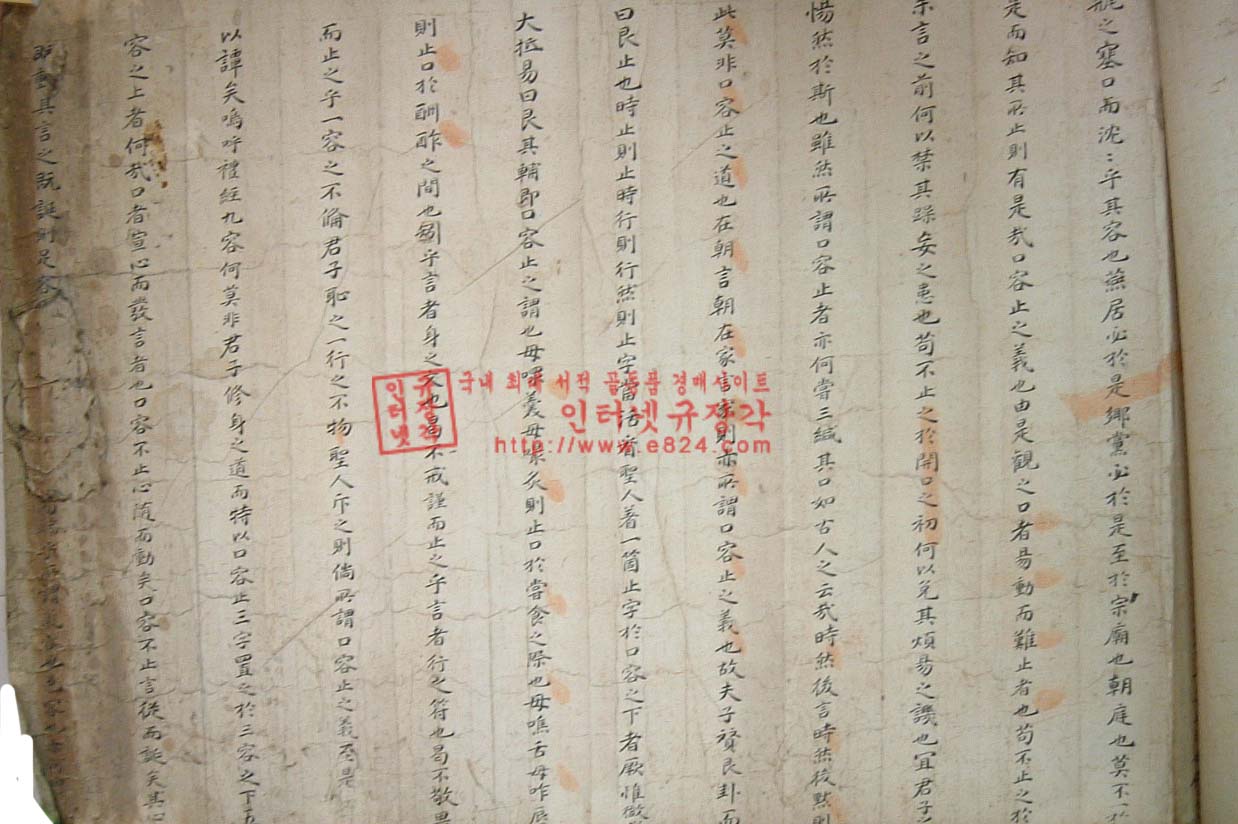 之塞口而沈〻乎其容也燕居必於是鄉黨必於是至於宗廟也朝庭也莫不
是而知其所止則有是㢤口容止之義也由是觀之口者易動而難止者也苟不止之於
言之前何以禁其躁妄之患也苟不止之於開口之初何以免其煩易之譏也宜君子
惕然於斯也雖然所謂口容止者亦何嘗三緘其口如古人之云㢤時然後言時然後默則
此莫非口容止之道也在朝言朝在家言則亦所謂口容止之義也故夫子贊艮卦而
曰艮止也時止則止時行則行然則止字當活看聖人着一箇止字於口容之下者厥惟
大抵易曰艮其輔即口容止之謂也毋羹毋炙則止口於嘗食之際也毋舌毋咋
則止口於酬酢之間也矧乎言者身之文也曷不戒謹而止之乎言者行之符也曷不敬
而止之乎一容之不脩君子恥之一行之不物聖人斥之則倘所謂口容止之義不是
以譚矣嗚呼禮經九容何莫非君子修身之道而特以口容止三字置之於三容之下五
容之上者何㢤口者宣心而發言者也口容不止心隨而動矣口容不止言從而誕矣其心
既動其言之既誕則足容
국내 최대 서적 골동품 경매사이트
인터넷규장각
http://www.e824.com
인터넷 규장각